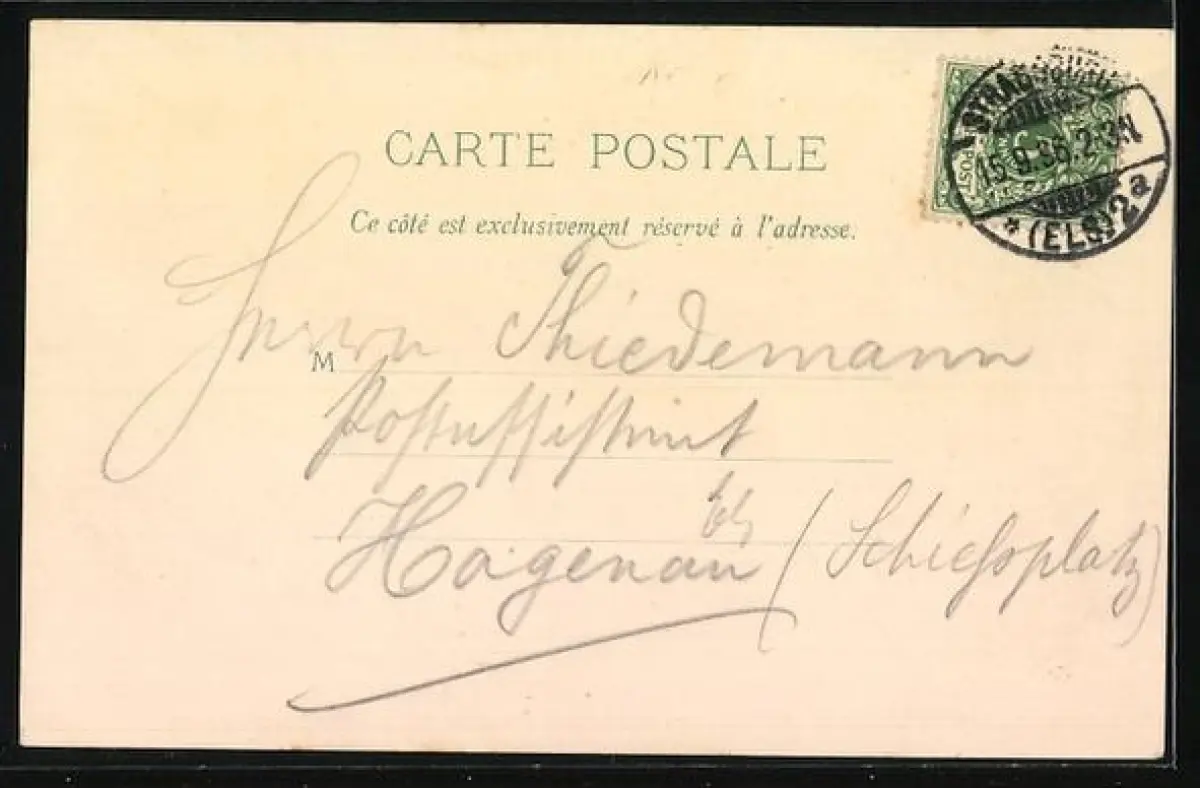 CARTE POSTALE
Ce côté est exclusivement réservé à l'adresse.
STRASSBURG
15.9.96.2-3N.
* (ELS) 2a
M
Herrn Thiedemann
Postassistent
Hagenau (Schießplatz)